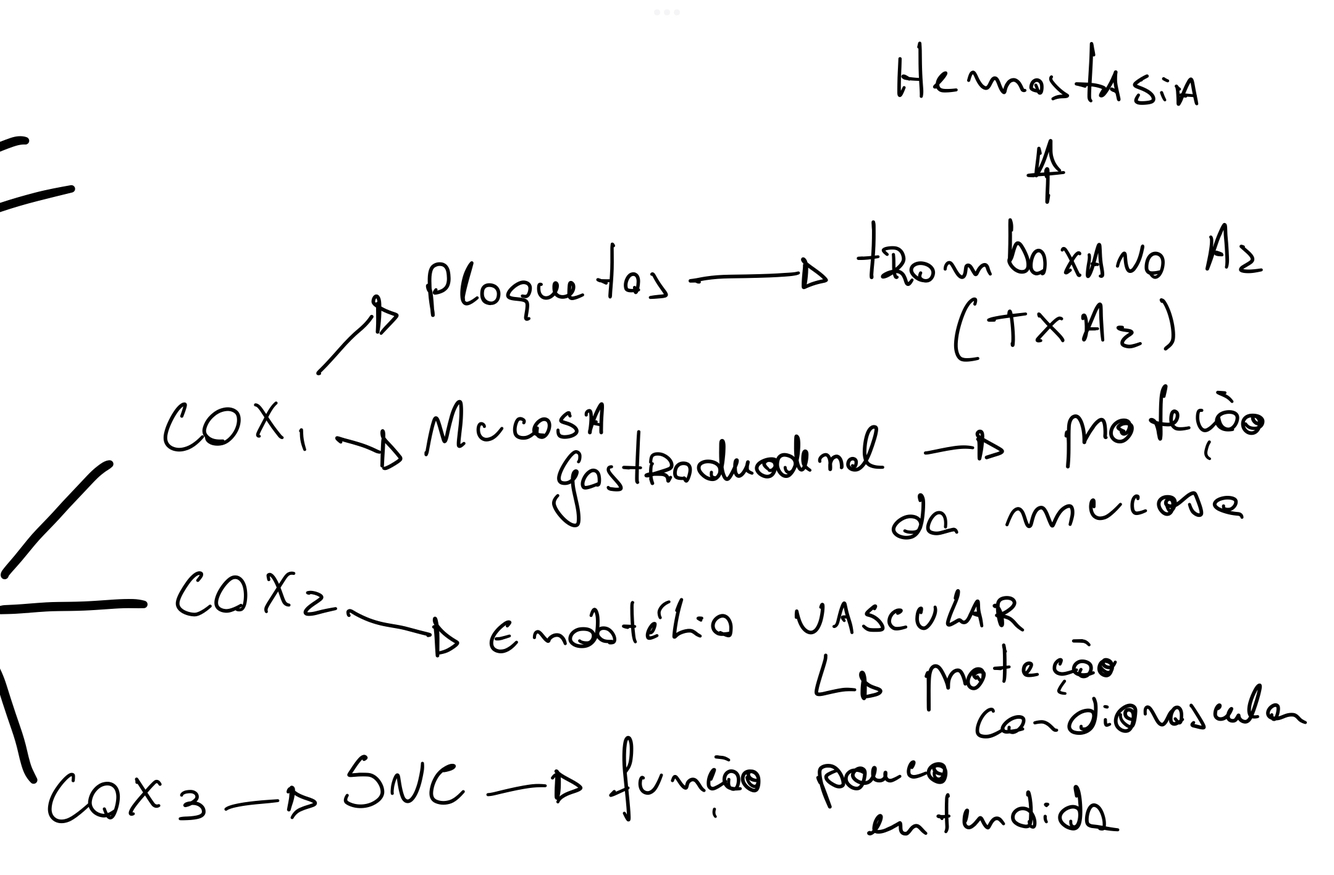 HemostASiA
Ploquetas
tRomboXANO A2
(TXA2)
COX1
MucosA
gostRoduodenal
proteção
da mucosa
COX2
Endotélio VASCULAR
proteção
cardiovascular
COX3
SNC
função pouco
entendida